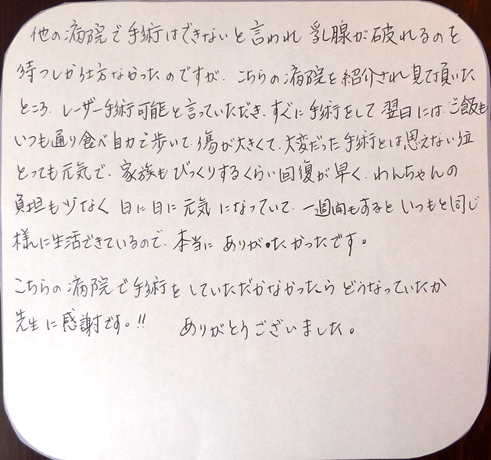 他の病院で手術はできないと言われ 乳腺が破れるのを
待つしか仕方なかったのですが、こちらの病院を紹介され見て頂いた
ところ、レーザー手術可能と言っていただき、すぐに手術をして 翌日には、ご飯も
いつも通り食べ自力で歩いて、傷が大きくて、大変だった手術とは思えない位
とっても元気で、家族もびっくりするくらい回復が早く、わんちゃんの
負担も少なく 日に日に元気になっていて、一週間もするといつもと同じ
様に生活できているので、本当に ありがたかったです。
こちらの病院で手術をしていただかなかったら どうなっていたか
先生に感謝です。!! ありがとうございました。